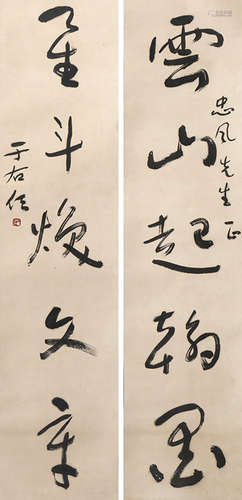 雲山起翰墨
忠風先生正
星斗煥文章
于右任